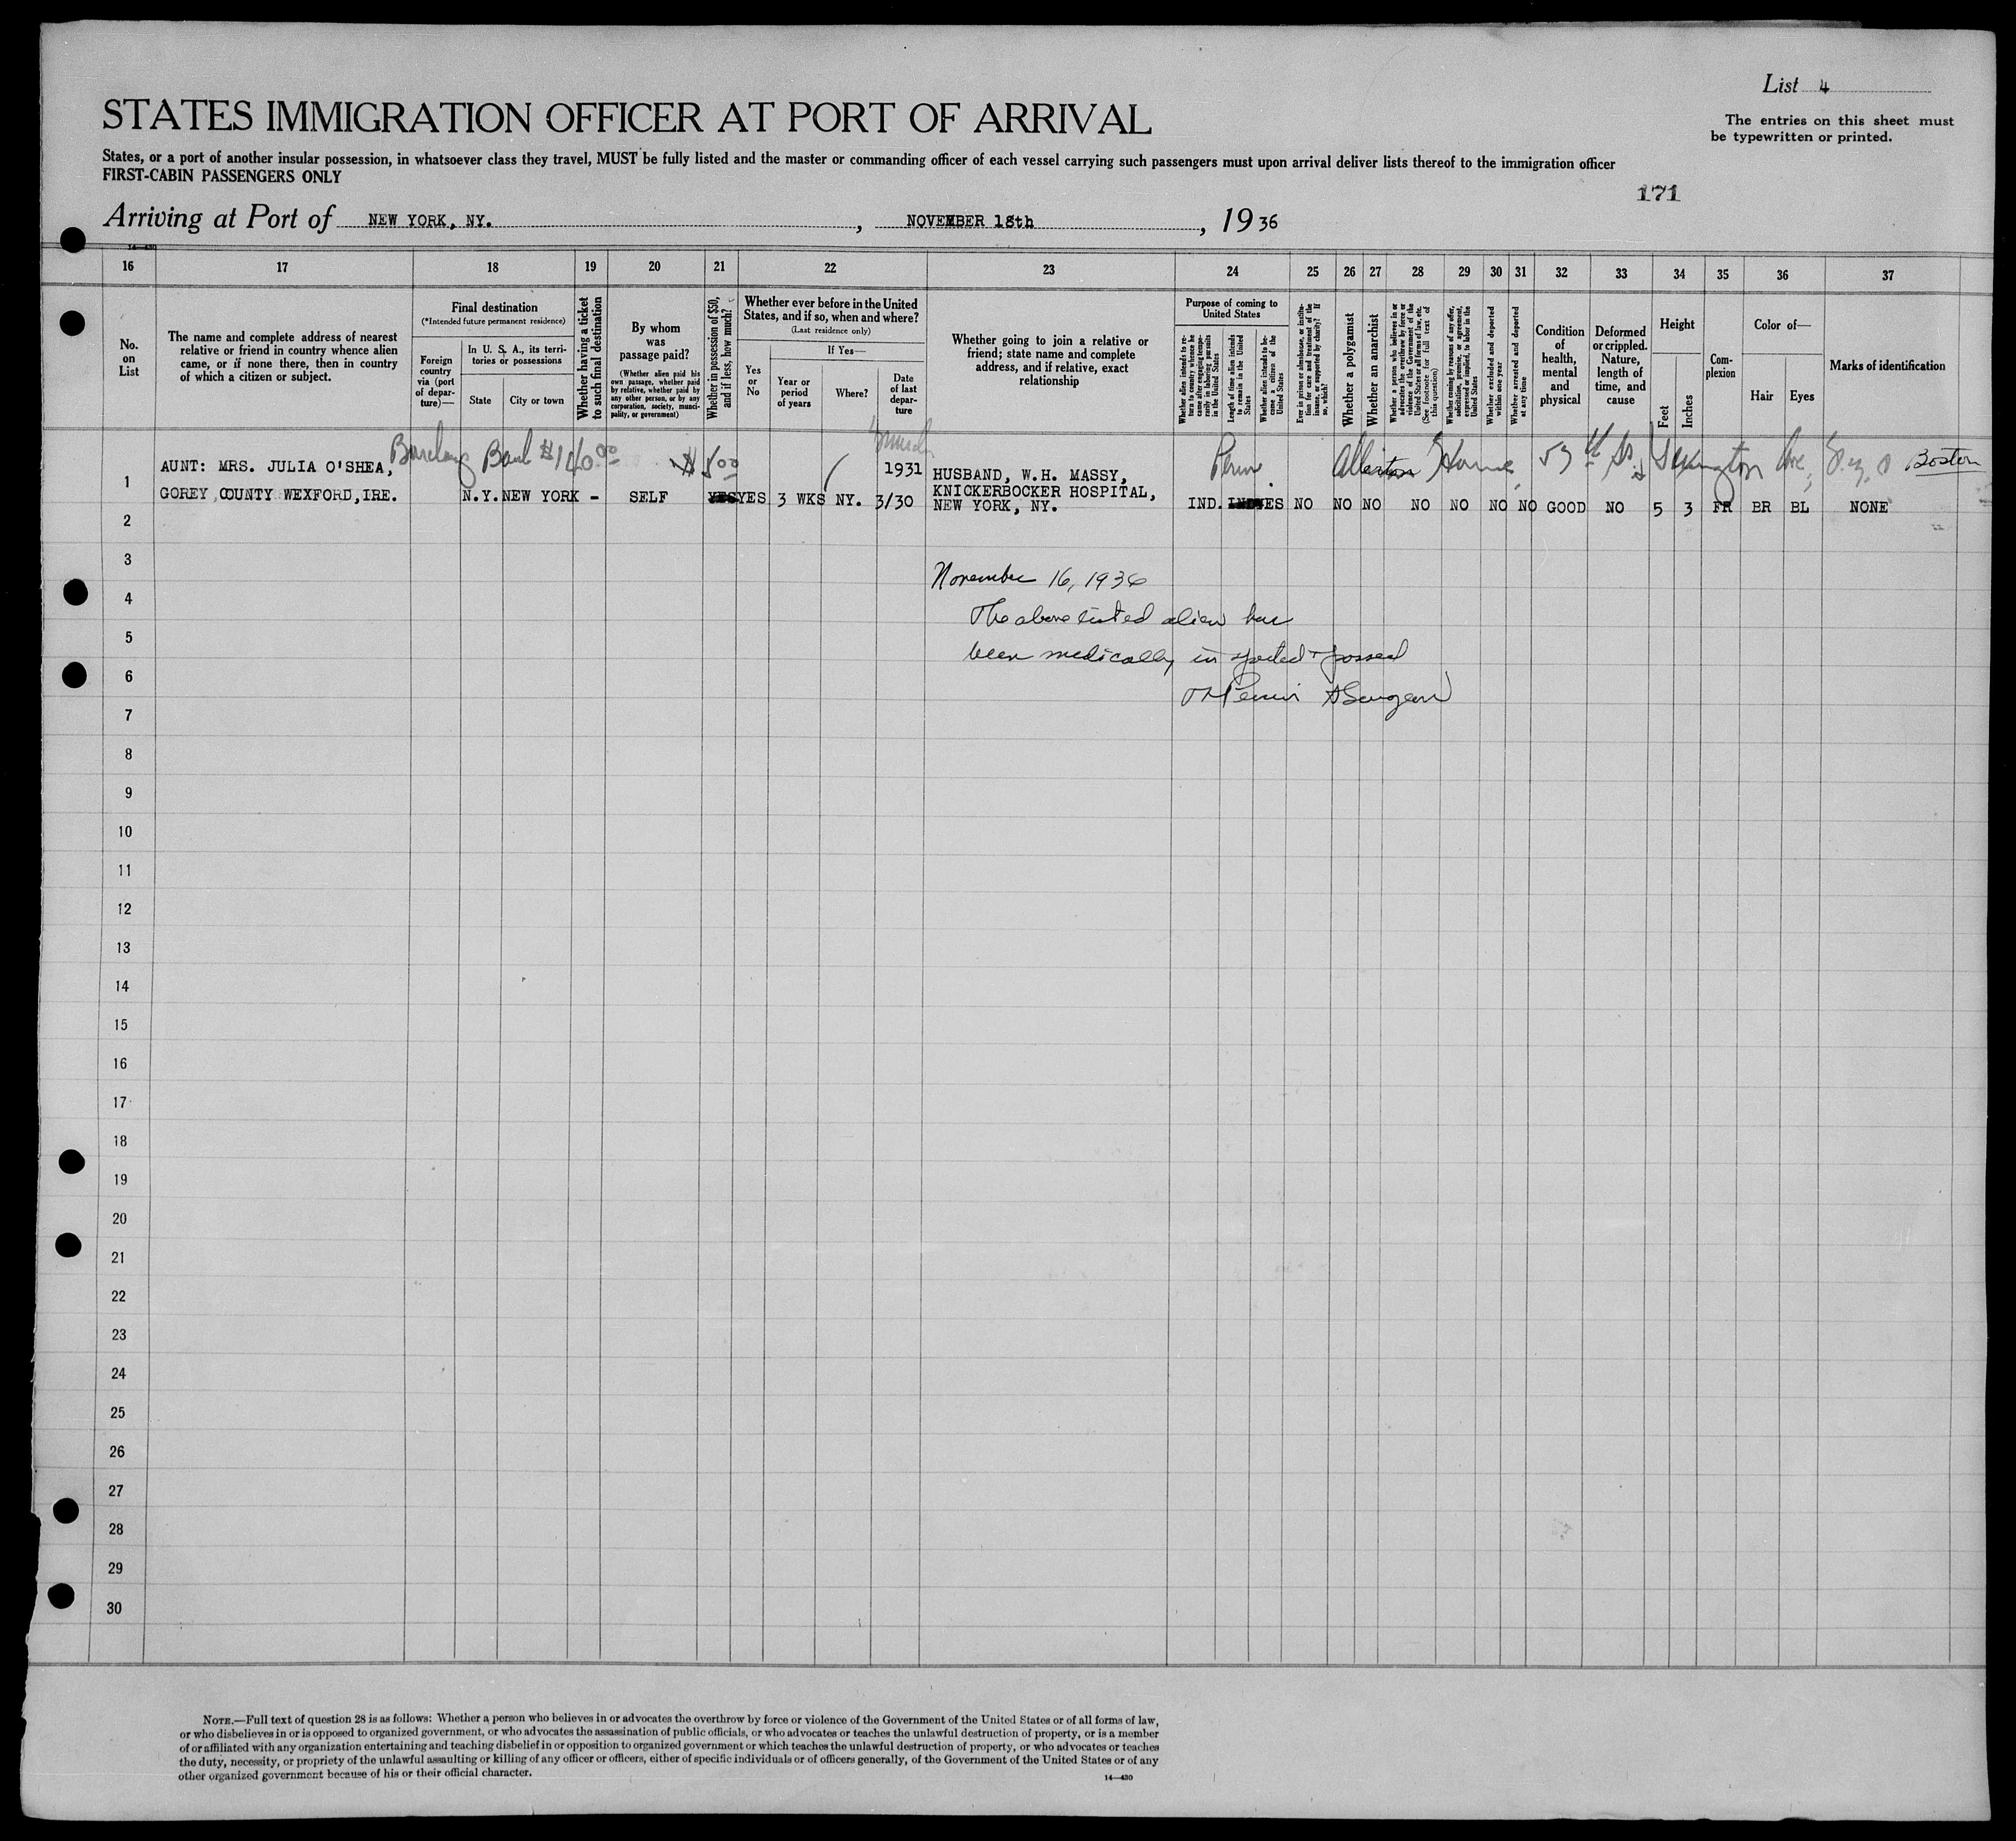 List 4
STATES IMMIGRATION OFFICER AT PORT OF ARRIVAL
The entries on this sheet must
be typewritten or printed.
States, or a port of another insular possession, in whatsoever class they travel, MUST be fully listed and the master or commanding officer of each vessel carrying such passengers must upon arrival deliver lists thereof to the immigration officer
FIRST-CABIN PASSENGERS ONLY
171
Arriving at Port of NEW YORK, NY. , NOVEMBER 18th , 1936
14—430
16 17 18 19 20 21 22 23 24 25 26 27 28 29 30 31 32 33 34 35 36 37
No.
on
List
The name and complete address of nearest
relative or friend in country whence alien
came, or if none there, then in country
of which a citizen or subject.
Final destination
(*Intended future permanent residence)
Foreign
country
via (port
of depar-
ture)—
In U. S. A., its terri-
tories or possessions
State
City or town
Whether having a ticket
to such final destination
By whom
was
passage paid?
(Whether alien paid his
own passage, whether paid
by relative, whether paid by
any other person, or by any
corporation, society, munici-
pality, or government)
Whether in possession of $50,
and if less, how much?
Whether ever before in the United
States, and if so, when and where?
(Last residence only)
Yes
or
No
If Yes—
Year or
period
of years
Where?
Date
of last
depar-
ture
Whether going to join a relative or
friend; state name and complete
address, and if relative, exact
relationship
Purpose of coming to
United States
Whether alien intends to re-
turn to country whence he
came after engaging tempo-
rarily in laboring pursuits
in the United States
Length of time alien intends
to remain in the United
States
Whether alien intends to be-
come a citizen of the
United States
Ever in prison or almshouse, or institu-
tion for care and treatment of the
insane, or supported by charity? If
so, which?
Whether a polygamist
Whether an anarchist
Whether a person who believes in or
advocates the overthrow by force or
violence of the Government of the
United States or all forms of law, etc.
(See footnote for full text of
this question)
Whether coming by reasons of any offer,
solicitation, promise, or agreement,
expressed or implied, to labor in the
United States
Whether excluded and deported
within one year
Whether arrested and deported
at any time
Condition
of
health,
mental
and
physical
Deformed
or crippled.
Nature,
length of
time, and
cause
Height
Feet
Inches
Com-
plexion
Color of—
Hair
Eyes
Marks of identification
Barclay Bank $140.00 $500 Perm. Allerton Home, 57th St. & Lexington Ave, Boston
1 AUNT: MRS. JULIA O'SHEA, 1931 HUSBAND, W.H. MASSY,
GOREY, COUNTY WEXFORD, IRE. N.Y. NEW YORK - SELF YES YES 3 WKS NY. 3/30 KNICKERBOCKER HOSPITAL,
NEW YORK, NY. IND. YES NO NO NO NO NO NO NO GOOD NO 5 3 FR BR BL NONE
2
3
November 16, 1936
4
The above listed alien has
5
been medically inspected + passed
6
Surgeon
7
8
9
10
11
12
13
14
15
16
17
18
19
20
21
22
23
24
25
26
27
28
29
30
NOTE.—Full text of question 28 is as follows: Whether a person who believes in or advocates the overthrow by force or violence of the Government of the United States or of all forms of law,
or who disbelieves in or is opposed to organized government, or who advocates the assassination of public officials, or who advocates or teaches the unlawful destruction of property, or is a member
of or affiliated with any organization entertaining and teaching disbelief in or opposition to organized government or which teaches the unlawful destruction of property, or who advocates or teaches
the duty, necessity, or propriety of the unlawful assaulting or killing of any officer or officers, either of specific individuals or of officers generally, of the Government of the United States or of any
other organized government because of his or their official character.
14—430